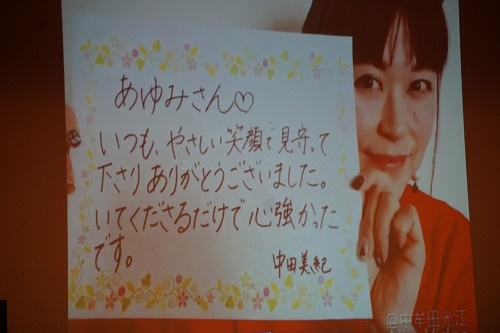 あゆみさん♡
いつも、やさしい笑顔で見守って
下さりありがとうございました。
いてくださるだけで心強かった
です。
中田美紀
@中牟田光江